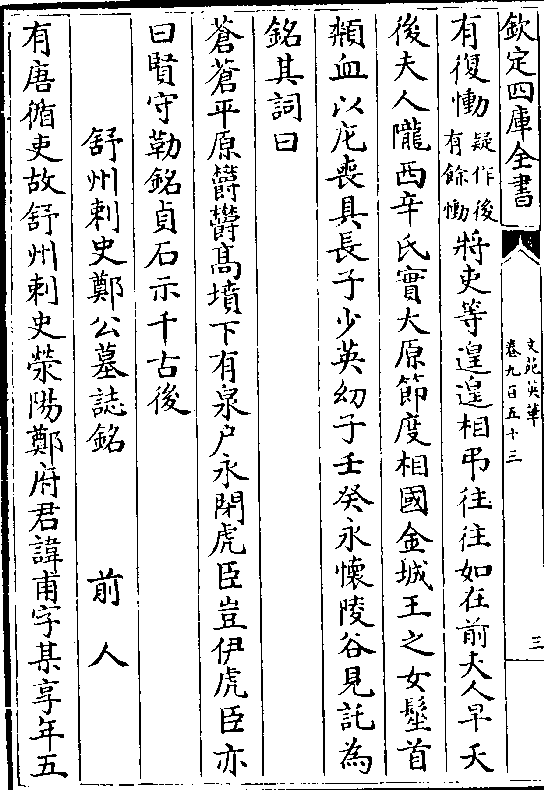 欽定四庫全書
文苑英華
卷九百五十三
三
有復慟疑作後有餘慟將吏等遑遑相弔往往如在前夫人早夭
後夫人隴西辛氏實大原節度相國金城王之女髽首
纇血以庀喪具長子少英幼子壬癸永懷陵谷見託為
銘其詞曰
蒼蒼平原欝欝髙墳下有泉户永閉虎臣豈伊虎臣亦
曰賢守勒銘貞石示千古後
舒州刺史鄭公墓誌銘　前人
有唐循吏故舒州刺史滎陽鄭府君諱甫字某享年五